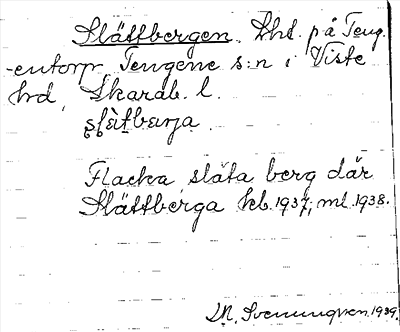 Slättbergen. Lht. på Teng-
-entorp, Tengene s:n i Viste
hrd, Skarab. l.
slätbærja.
Flacka släta berg där
Slättberga kb. 1937, ml. 1938.
M. Svenungsson. 1939.